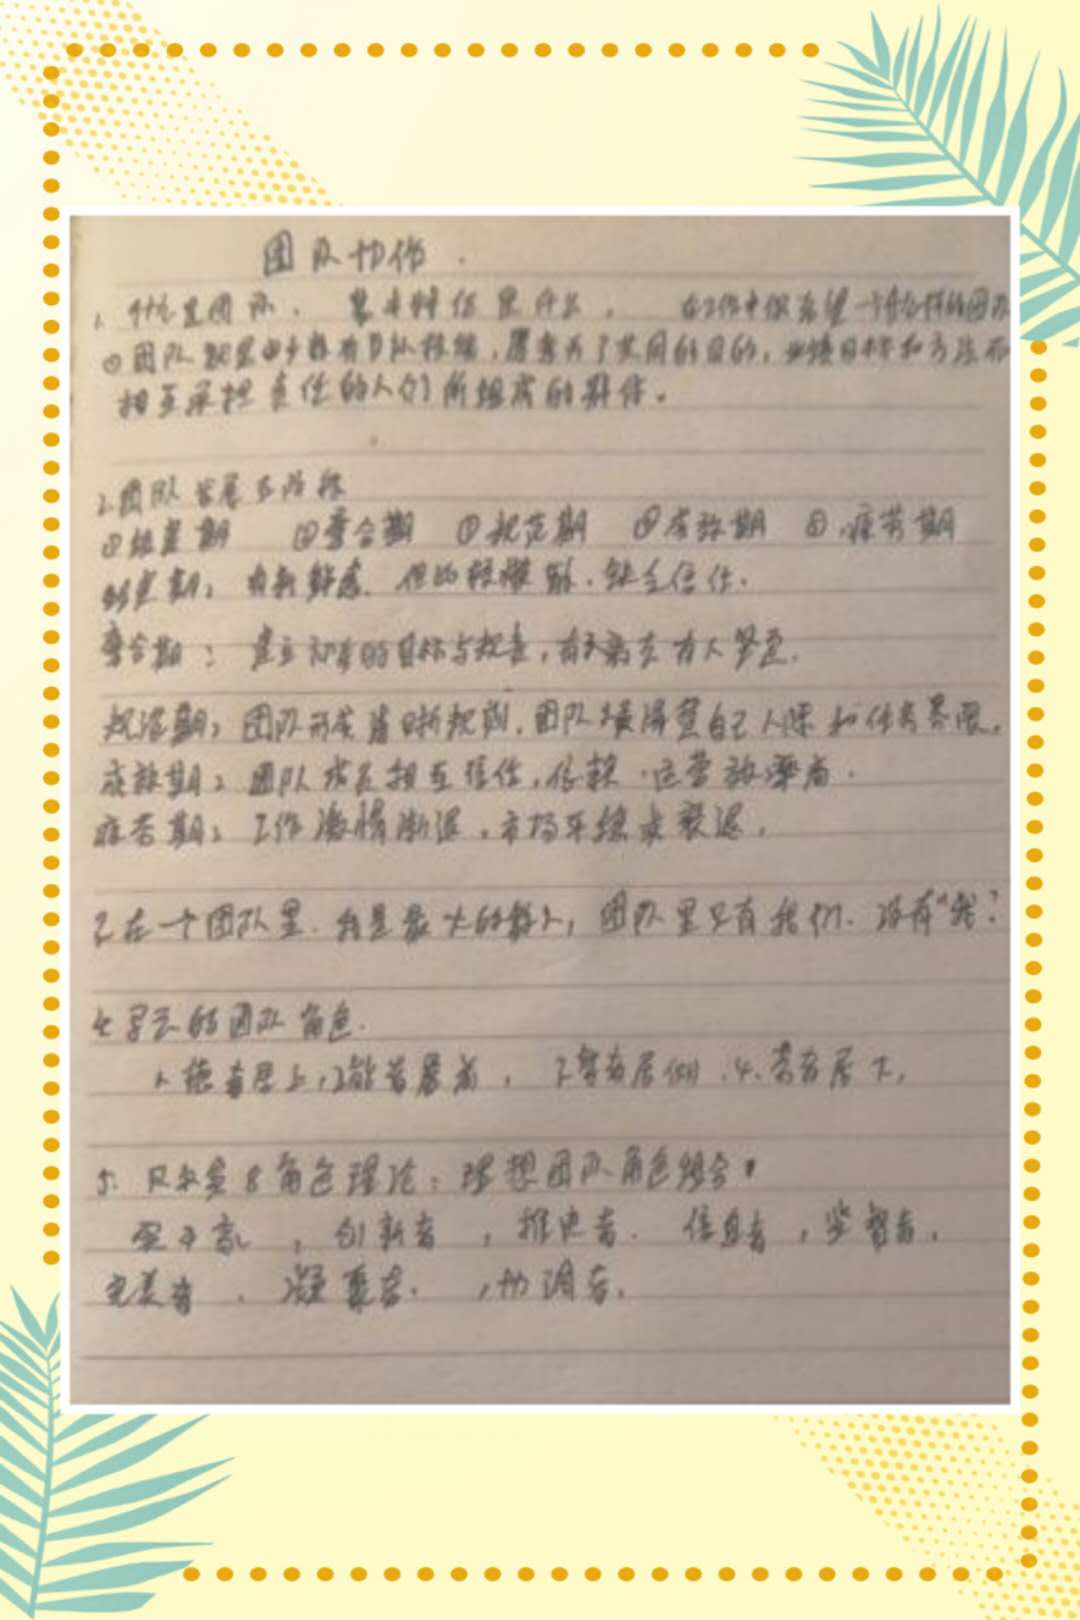 团队协作.
1、什么是团队、基本特征是什么, 在工作中你希望一个什么样的团队
①团队就是由少数有 技能,愿意为了共同的目的,业绩目标和方法而
相互承担责任的人们所组成的群体。
2.团队发展五阶段
①组建期 ②磨合期 ③规范期 ④成效期 ⑤疲劳期
组建期: 有新鲜感、但 ,缺乏信任.
磨合期: 建立初步的目标与规 ,有 有人 .
规范期: 团队形成 清晰规则,团队 自己人 和任务界限。
成效期: 团队成员相互信任,依赖.运营效率高.
疲劳期: 工作激情渐退,市场业绩 衰退,
3.在一个团队里.我是最大的敌人,团队里只有我们.没有“我”
4. 的团队角色.
1.德者居上,2能者居前, 3智者居侧.4.劳者居下,
5. 贝尔宾8角色理论:理想团队角色组合:
实干家, 创新者, 推进者. 信息者,监督者,
完美者. 凝聚者. ,协调者.